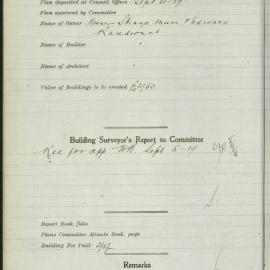 Plan deposited at Council Offices Sept 4-19
Plan approved by Committee
Name of Owner Messrs Sharp
Randwick
Name of Builder "
Name of Architect "
Value of Buildings to be erected £1950
Building Surveyor's Report to Committee
Rec for app Sept 5-19
Report Book, folio
Plans Committee Minute Book, page
Building Fee Paid
Remarks